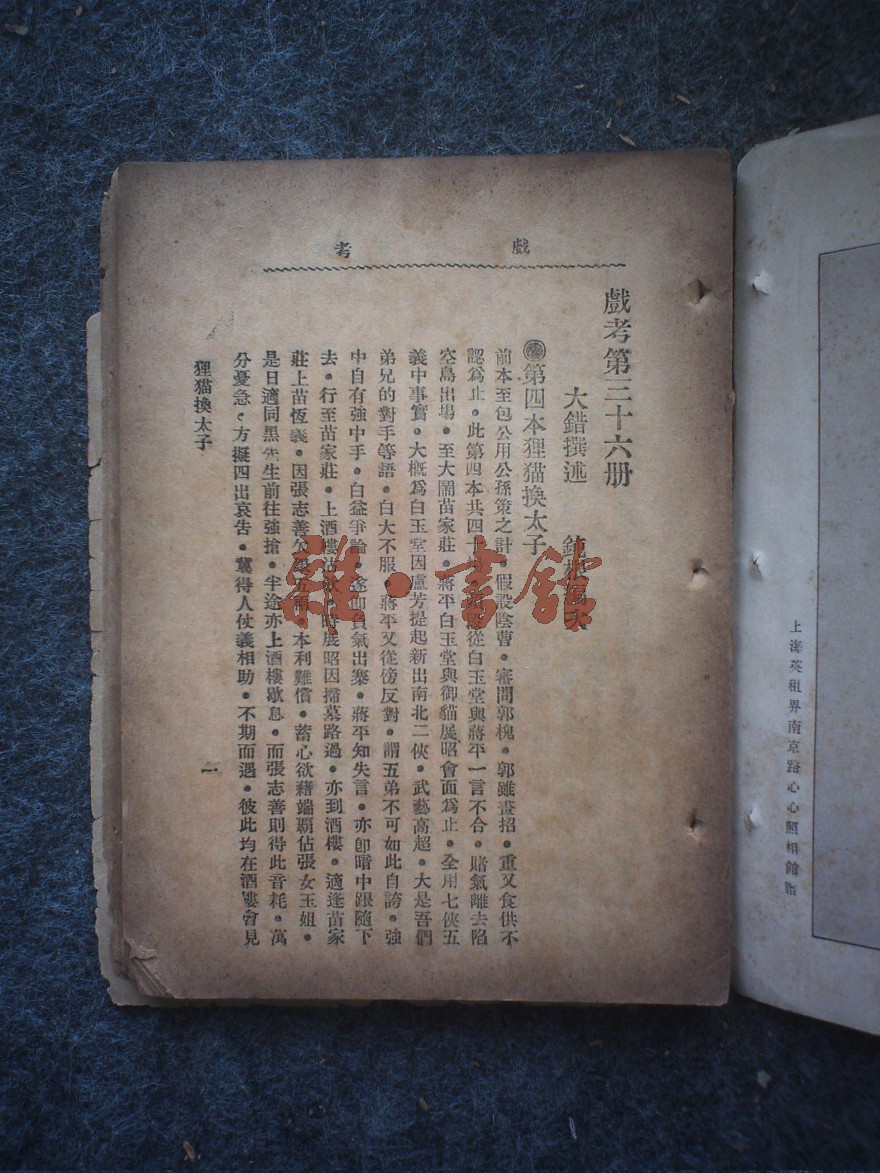 戲考
戲考第三十六册
大錯撰述　鈍根編次
第四本狸猫換太子
前本至包公用公孫策之計·假設陰曹·審問郭槐·郭雖畫招·重又食供不
認爲止·此第四本共四十從白玉堂與蔣平一言不合·賭氣離去陷
空島出塲·至大鬧苗家莊·蔣平白玉堂與御猫展昭會面爲止·全用七俠五
義中事實·大概爲白玉堂因盧芳提起新出南北二俠·武藝高超·大是吾們
弟兄的對手等語·白大不服·蔣平又從傍反對·謂五弟不可如此自誇·強
中自有強中手·白益爭論·遂即負氣出寨·蔣平知失言·亦卽暗中跟隨下
去·行至苗家莊·上酒樓沽飲·時展昭因掃墓路過·亦到酒樓·適逢苗家
莊上苗恆義·因張志善欠銀五兩·本利難償·蓄心欲藉端覇佔張女玉姐·
是日適同黑先生前往強搶·半途亦上酒樓歇息·而張志善則得此音耗·萬
分憂急·方擬四出哀告·冀得人仗義相助·不期而遇·彼此均在酒樓會見
狸猫換太子
一
上海英租界南京路心心照相館
雜·書館